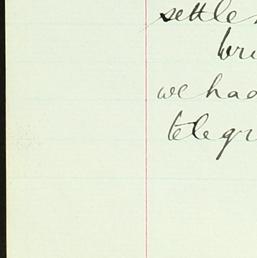 settle
bri
we had
telegr